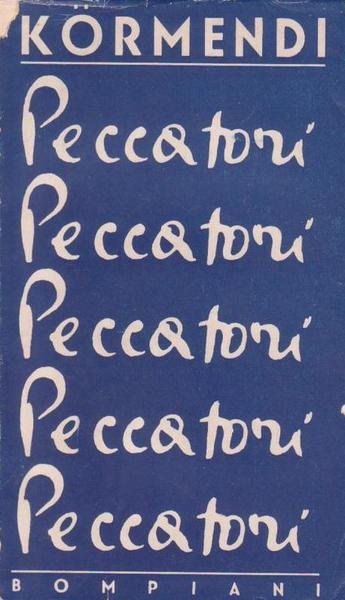 KÖRMENDI
Peccatori
Peccatori
Peccatori
Peccatori
Peccatori
BOMPIANI